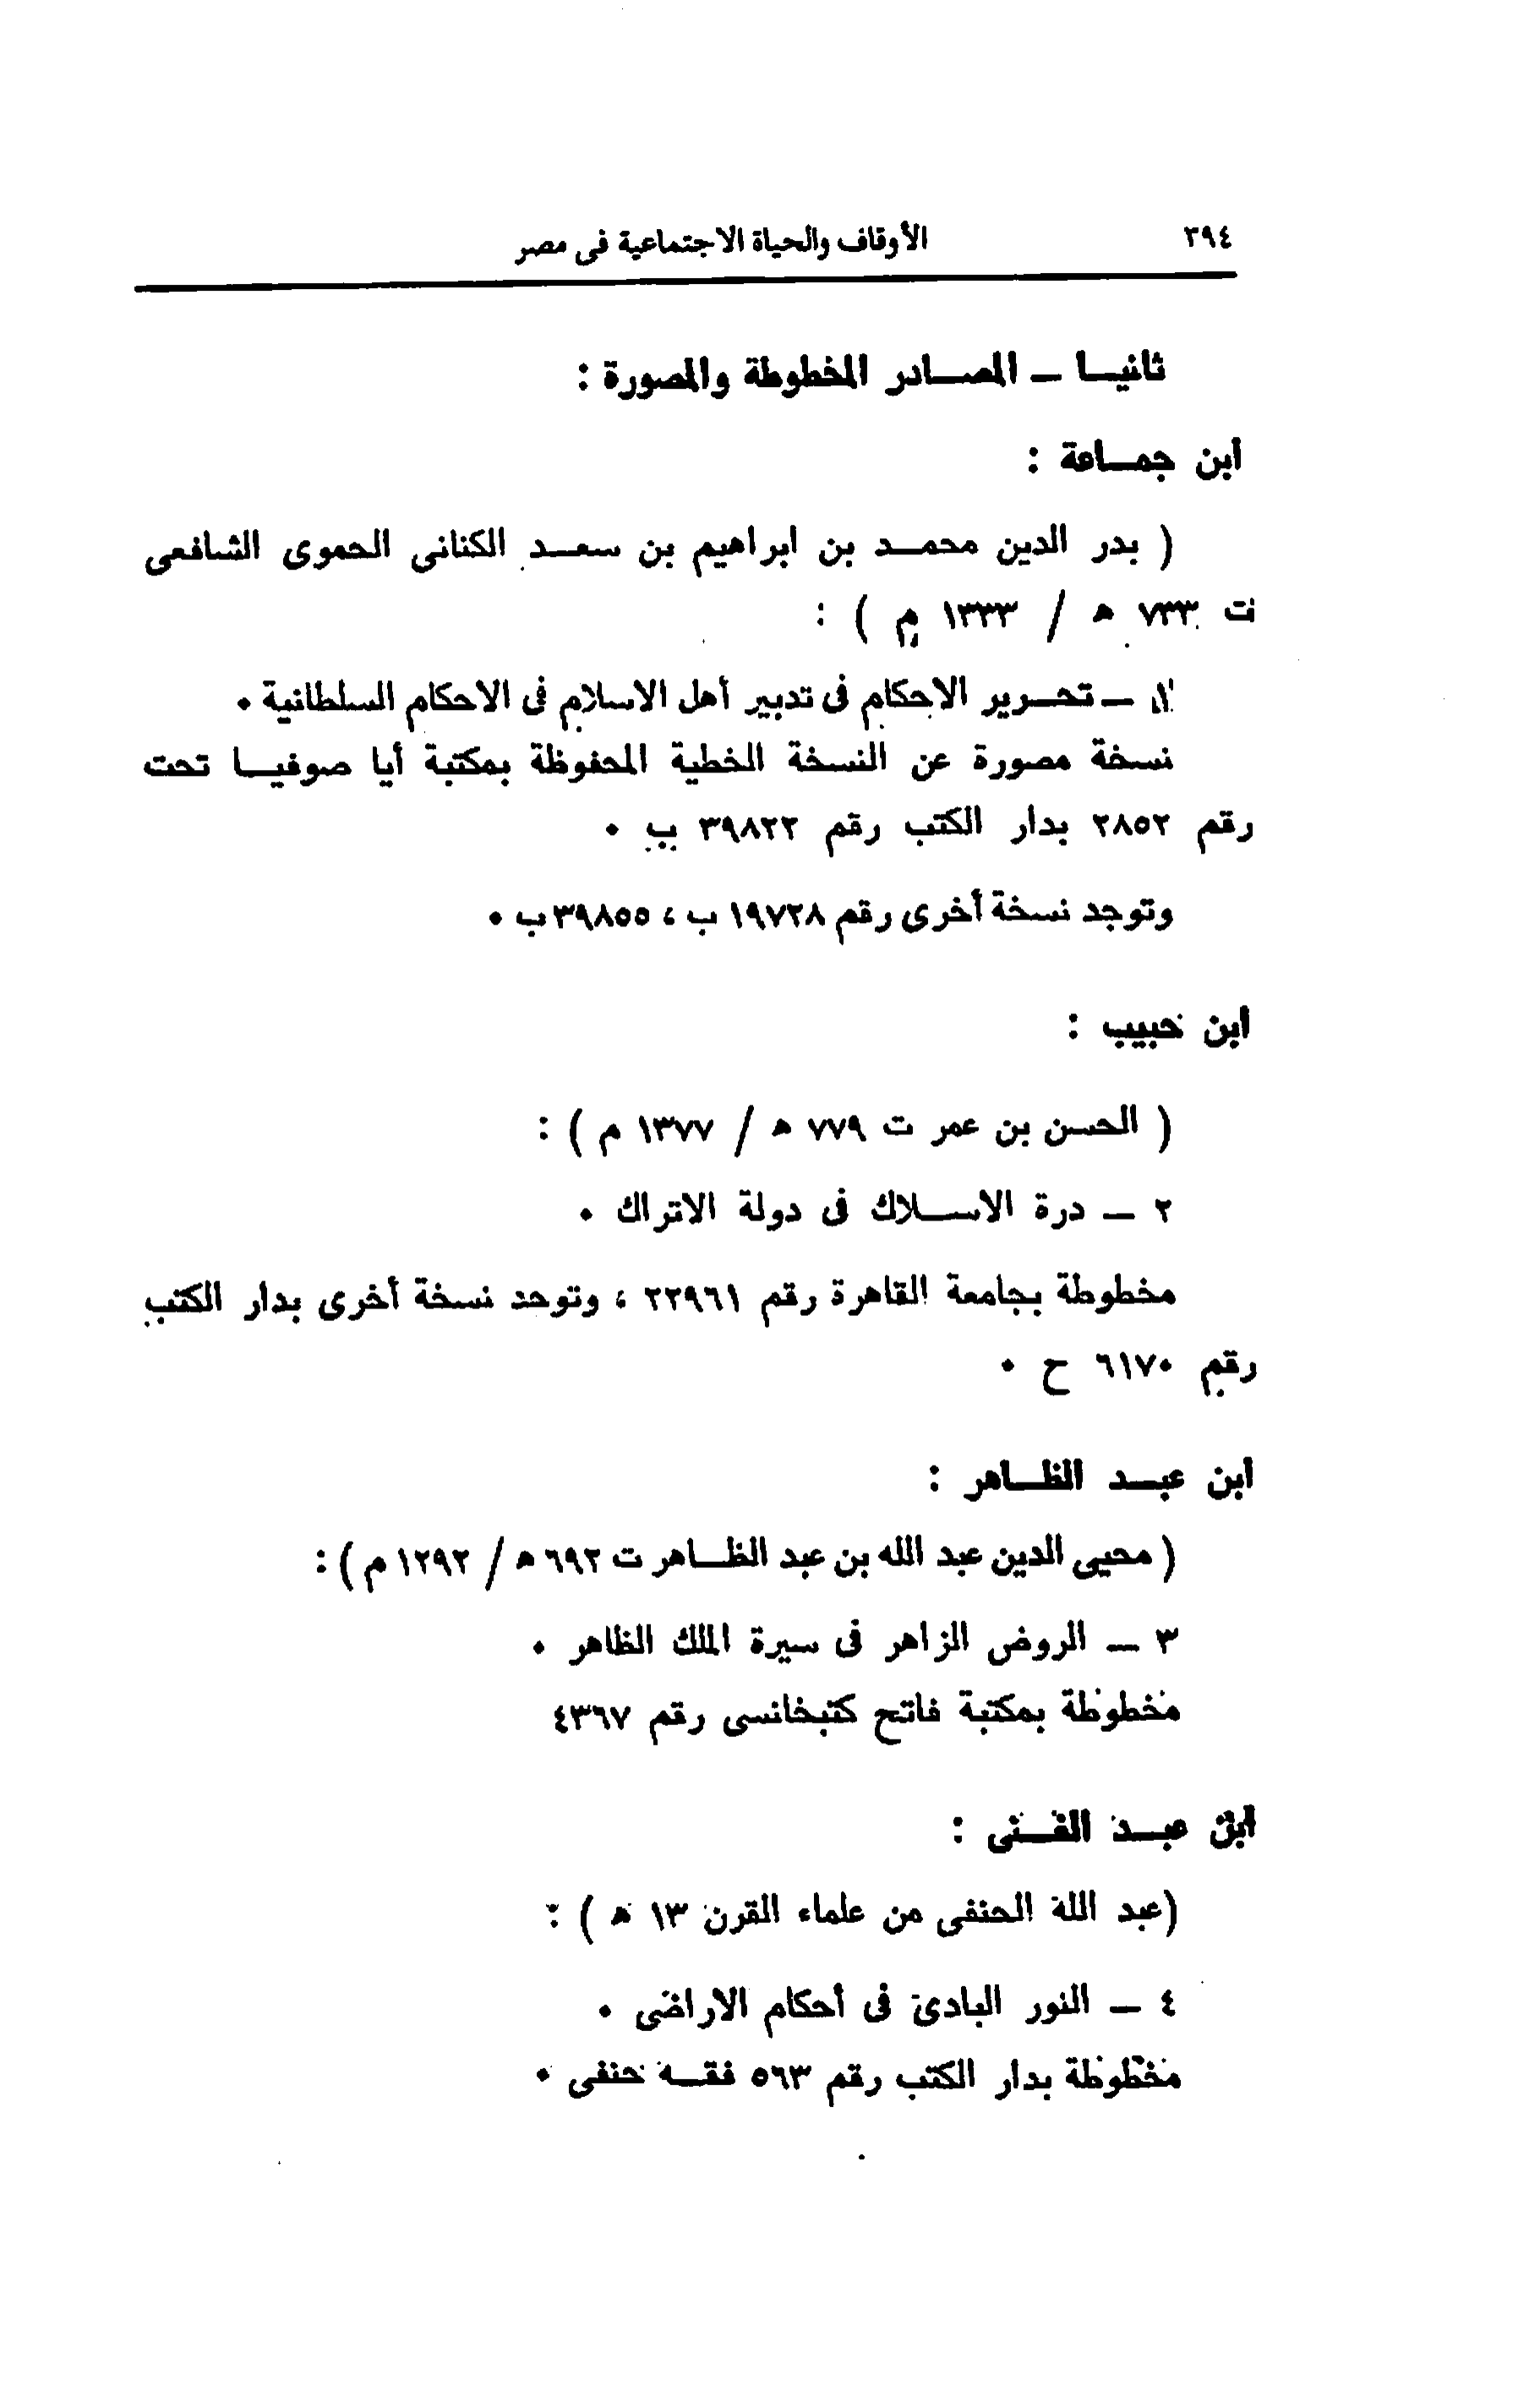 ٣٩٤ الأوقاف والحياة الاجتماعية فى مصر
ثانيا ــ المصادر المخطوطة والمصورة :
ابن جماعة :
( بدر الدين محمد بن ابراهيم بن سعد الكنانى الحموى الشافعى
ت ٧٣٣ هـ / ١٣٣٣ م ) :
١ ــ تحرير الاحكام فى تدبير أهل الاسلام فى الاحكام السلطانية ٠
نسخة مصورة عن النسخة الخطية المحفوظة بمكتبة أيا صوفيا تحت
رقم ٢٨٥٢ بدار الكتب رقم ٣٩٨٢٢ ب ٠
وتوجد نسخة أخرى رقم ١٩٧٢٨ ب ، ٣٩٨٥٥ ب ٠
ابن حبيب :
( الحسن بن عمر ت ٧٧٩ هـ / ١٣٧٧ م ) :
٢ ــ درة الاسلاك فى دولة الاتراك ٠
مخطوطة بجامعة القاهرة رقم ٢٢٩٦١ ، وتوحد نسخة أخرى بدار الكتب
رقم ٦١٧٠ ح ٠
ابن عبد الظاهر :
( محيى الدين عبد الله بن عبد الظاهر ت ٦٩٢ هـ / ١٢٩٢ م ) :
٣ ــ الروض الزاهر فى سيرة الملك الظاهر ٠
مخطوطة بمكتبة فاتح كتبخانسى رقم ٤٣٦٧
ابن عبد الغنى :
(عبد الله الحنفى من علماء القرن ١٣ هـ ) :
٤ ــ النور البادى فى أحكام الاراضى ٠
مخطوطة بدار الكتب رقم ٥٦٣ فقه حنفى ٠